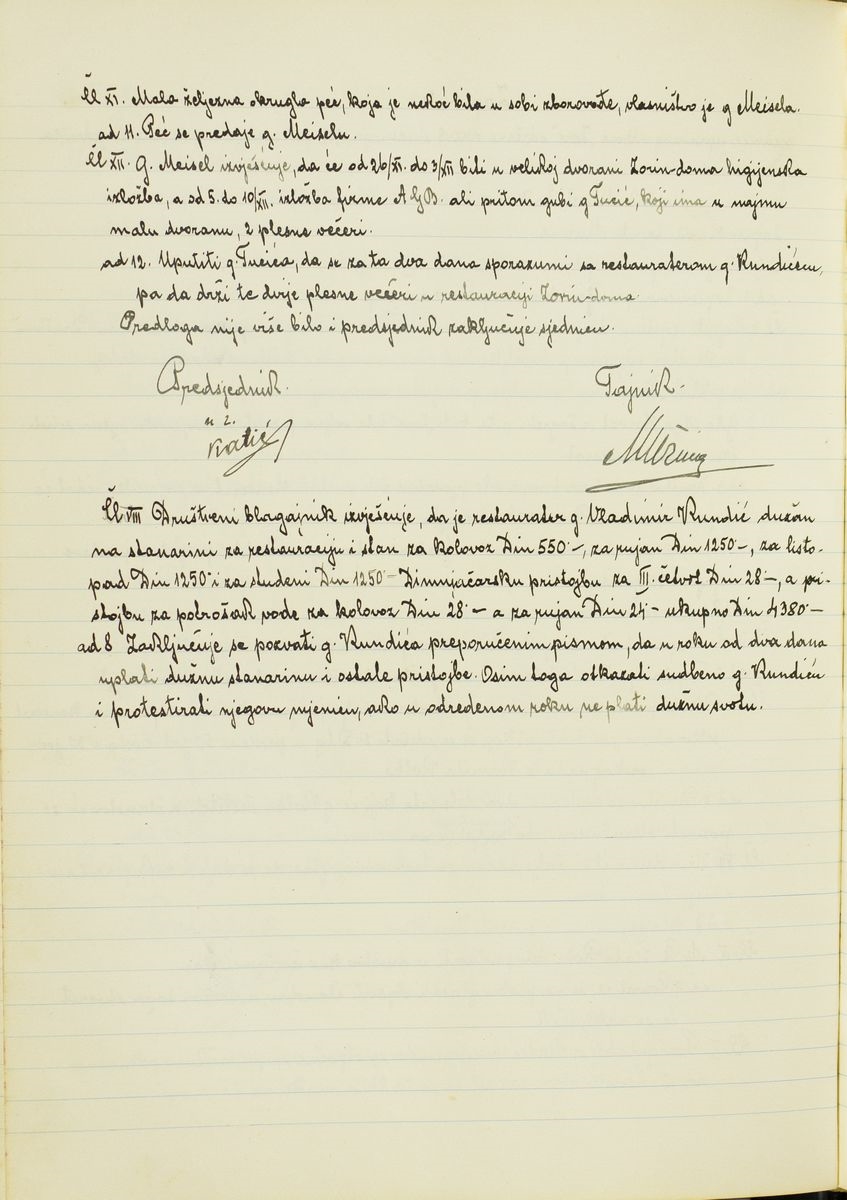 Čl XI. Mala željezna okrugla peć, koja je nekoć bila u sobi zborovođe, vlasništvo je g Meisela.
ad 11. Peć se predaje g. Meiselu.
Čl XII. G. Meisel izvješćuje, da će od 26/XI. do 3/XII biti u velikoj dvorani Zorin-doma higijenska
izložba, a od 5. do 10/XII. izložba firme AGB. ali pritom gubi g Tucić, koji ima u najmu
malu dvoranu, 2 plesne večeri.
ad 12. Uputiti g. Tucića, da se za ta dva dana sporazumi sa restauraterom g. Rundićem,
pa da drži te dvije plesne večeri u restauraciji Zorin-doma.
Predloga nije više bilo i predsjednik zaključuje sjednicu.
Predsjednik. Tajnik.
u z.
Katić
Čl VIII Društveni blagajnik izvješćuje, da je restaurater g. Vladimir Rundić dužan
na stanarini za restauraciju i stan za kolovoz Din 550·–, za rujan Din 1250·–, za listo-
pad Din 1250·– i za studeni Din 1250·– Dimnjačarsku pristojbu za III. četvrt Din 28·–, a pri-
stojbu za potrošak vode za kolovoz Din 28·– a za rujan Din 24·– ukupno Din 4380·–
ad 8 Zaključuje se pozvati g. Rundića preporučenim pismom, da u roku od dva dana
uplati dužnu stanarinu i ostale pristojbe. Osim toga otkazati sudbeno g. Rundiću
i protestirati njegovu mjenicu, ako u određenom roku ne plati dužnu svotu.